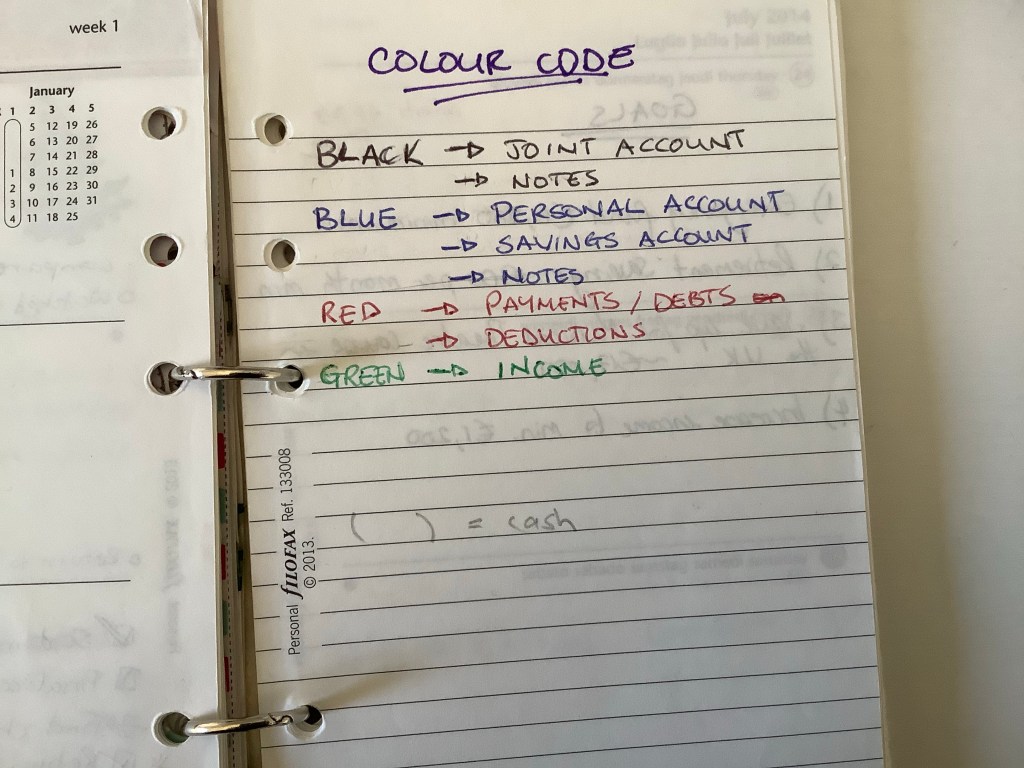 week 1
January
1 2 3 4 5
5 12 19 26
6 13 20 27
7 14 21 28
1 8 15 22 29
2 9 16 23 30
3 10 17 24 31
4 11 18 25
COLOUR CODE
BLACK → JOINT ACCOUNT
→ NOTES
BLUE → PERSONAL ACCOUNT
→ SAVINGS ACCOUNT
→ NOTES
RED → PAYMENTS / DEBTS
→ DEDUCTIONS
GREEN → INCOME
( ) = cash
Personal fILOFAX Ref. 133008
© 2013.